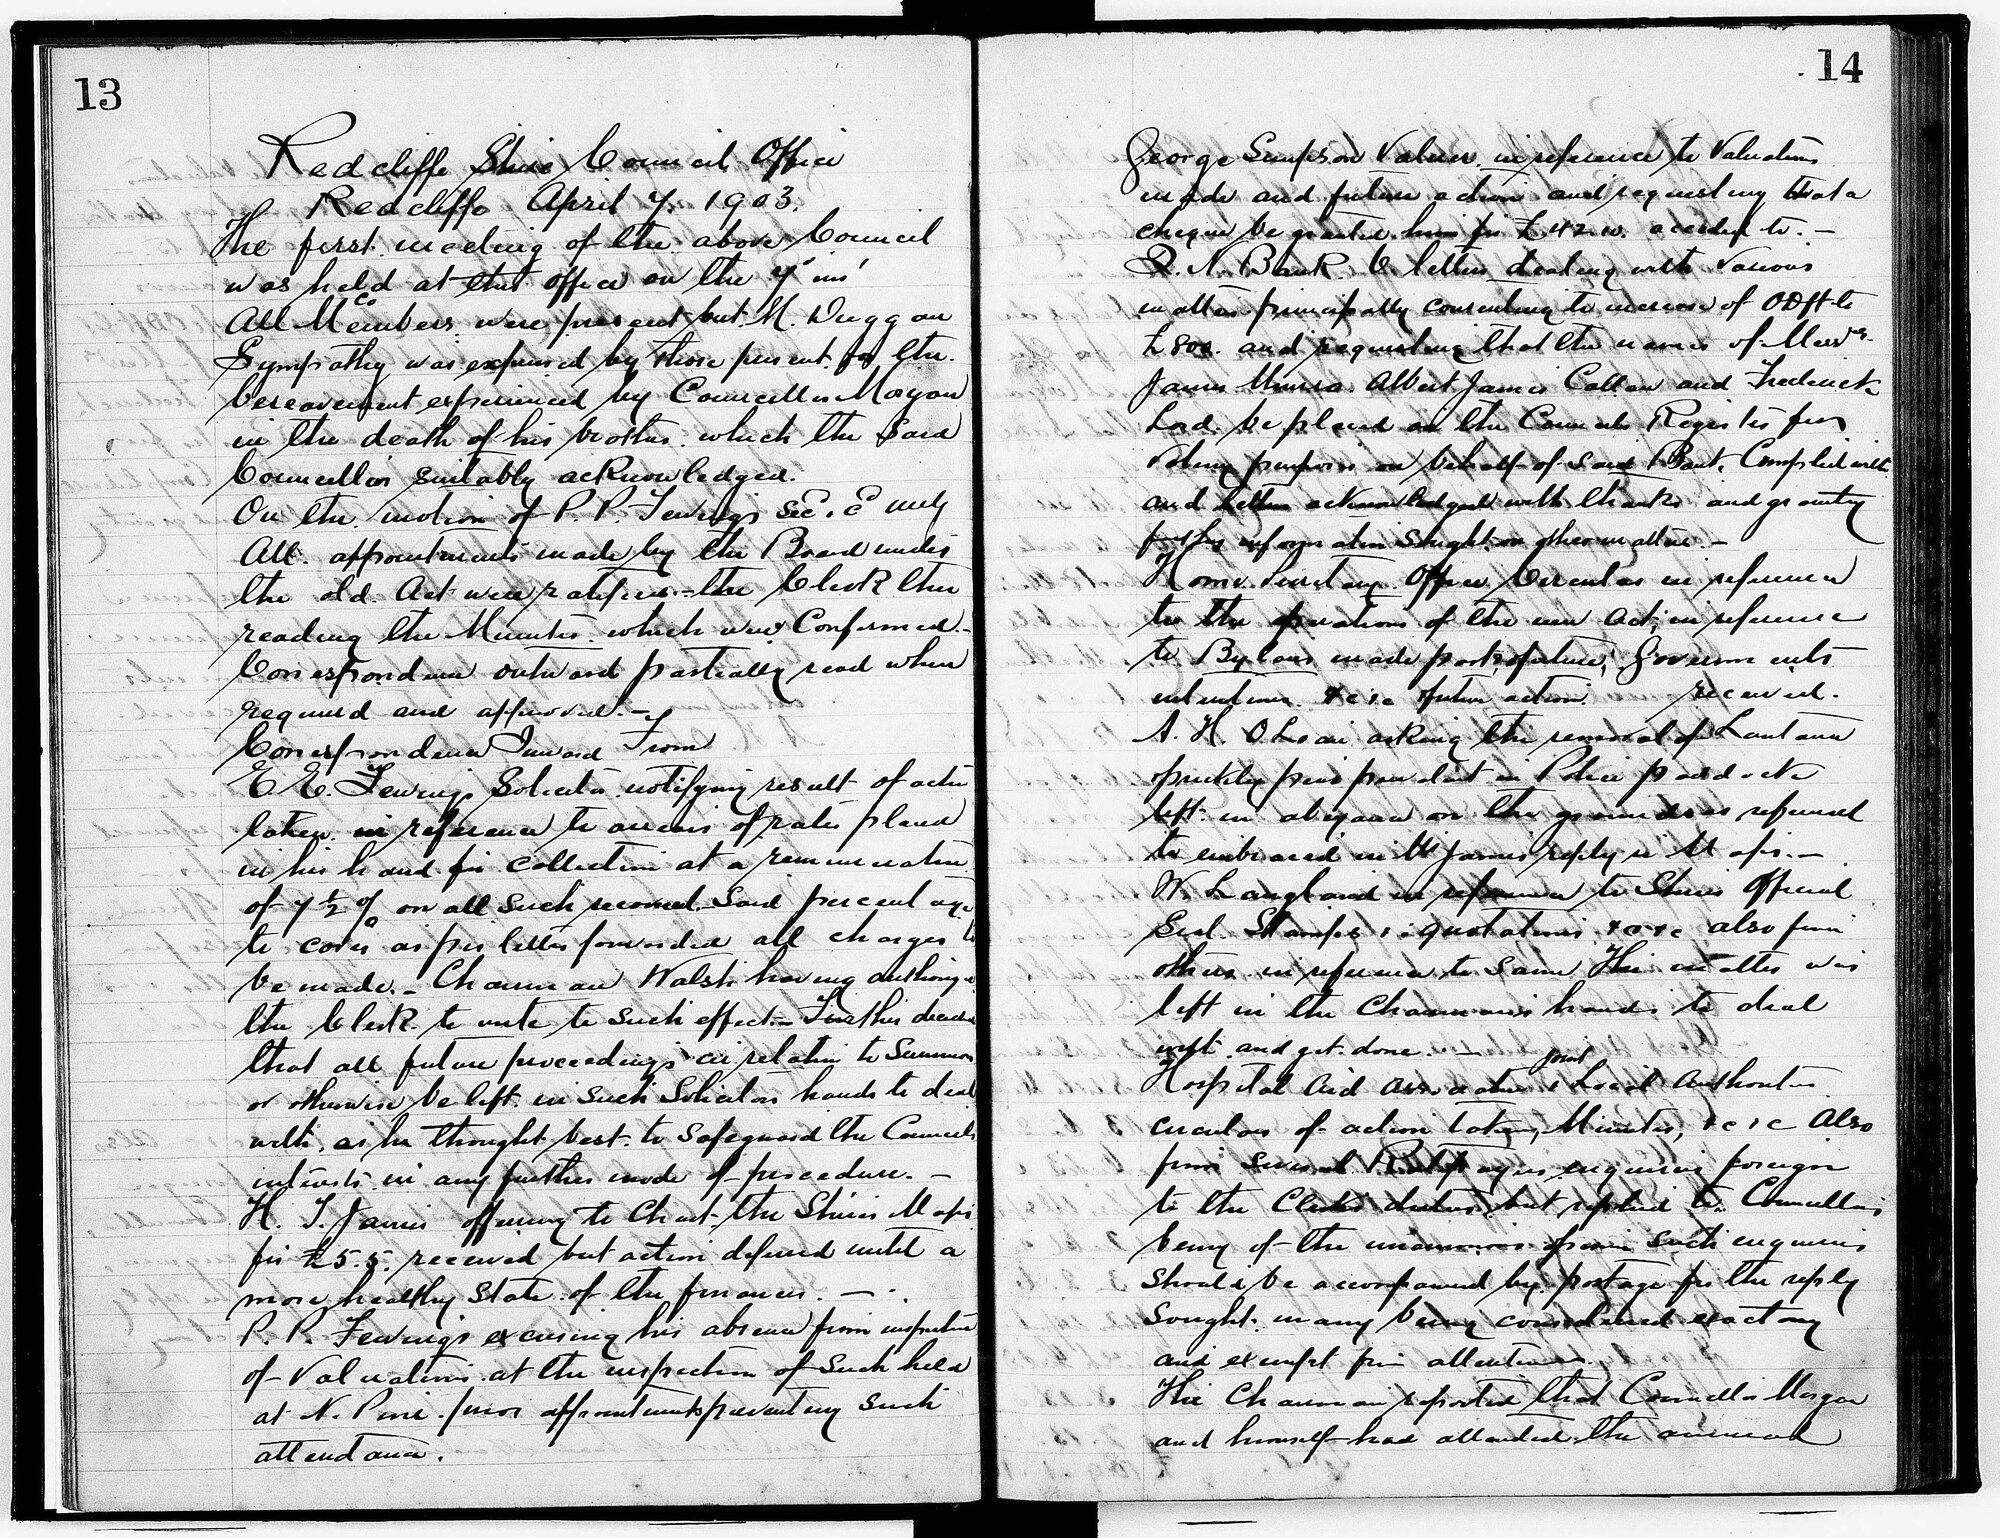 13
Redcliffe Shire Council Office
Redcliffe April 7. 1903.
The first meeting of the above Council
was held at this office on the 7" ins'
All Members were present but M. Duggan
Co
Sympathy was expressed by those present for the
bereavement experienced by Councillor Morgan
in the death of his brother which the said
Councillor suitably acknowledged.
On the motion of P. P. Fewings Sec
All appointments made by the Board under
the old Act were ratified the Clerk then
reading the Minutes which were Confirmed.-
Correspondence outward partially read when
required and approved.-
Correspondence Inward From
E. E. Fewings Solicitor notifying result of action
taken in reference to arrears of rates placed
in his hand for collection at a remuneration
of 7½ % on all such received. Said percentage
to cover as per letter forwarded all charges to
be made.- Chairman Walsh having authorized
the Clerk to write to such effect.- Further decided
that all future proceedings in relation to Summons
or otherwise be left in such Solicitors hands to deal
with, as he thought best to safeguard the Councils
interests in any further mode of procedure.-
H. J. James offering to Chart the Shires Maps
for £5.5. received but action defered until a
more healthy state of the finances.-
P. P. Fewings excusing his absence from inspection
of Valuations at the inspection of such held
at N. Pine prior appointments preventing such
attendance.
14
George Simpson Valuer in reference to Valuations
made and future action and requesting that a
cheque be granted him for £42.10. acceded to.-
Q. N. Bank. 6 letters dealing with various
matters principally consenting to increase of ODft to
£800. and requesting that the names of Messrs
James Munro Albert James Callan and Frederick
Lord be placed on the Councils Register for
Voting purposes on behalf of said Bank. Complied with
and letters acknowledged with thanks and granting
further information sought on other matters.-
Home Secretary Office Circulars in reference
to the operations of the new Act; in reference
to Bylaws made past & future; Governments
intentions &c &c future action. received.
A. H. O'Leary asking the removal of Lantana
prickly pear prevalent in Police paddock
left in abeyance on the grounds as refused
to embraced in Mr James reply re Maps.-
W. Langland in reference to Shires Official
Seal Stamps &c quotations &c &c also from
others in reference to same. The matter was
left in the Chairmans hands to deal
with and get done.-
Hospital Aid Association & joint Local Authorities
circulars of action taken, Minutes, &c &c Also
from several Ratepayers enquiries foreign
to the Clerks duties, but replied to. Councillors
being of the unanimous opinion such enquiries
should be accompanied by postage for the reply
sought. many being considered exacting
and exempt from attention.
The Chairman reported that Councillor Morgan
and himself had attended the annual